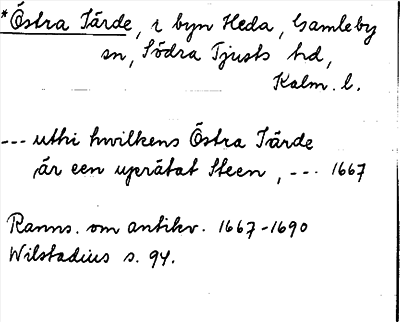 *Östra Tärde, i byn Heda, Gamleby
sn, Södra Tjusts hd,
Kalm. l.
--- uthi hwilkens Östra Tärde
är een uprätat Steen, --- 1667
Ranns. om antikv. 1667-1690
Wilstadius s. 94.